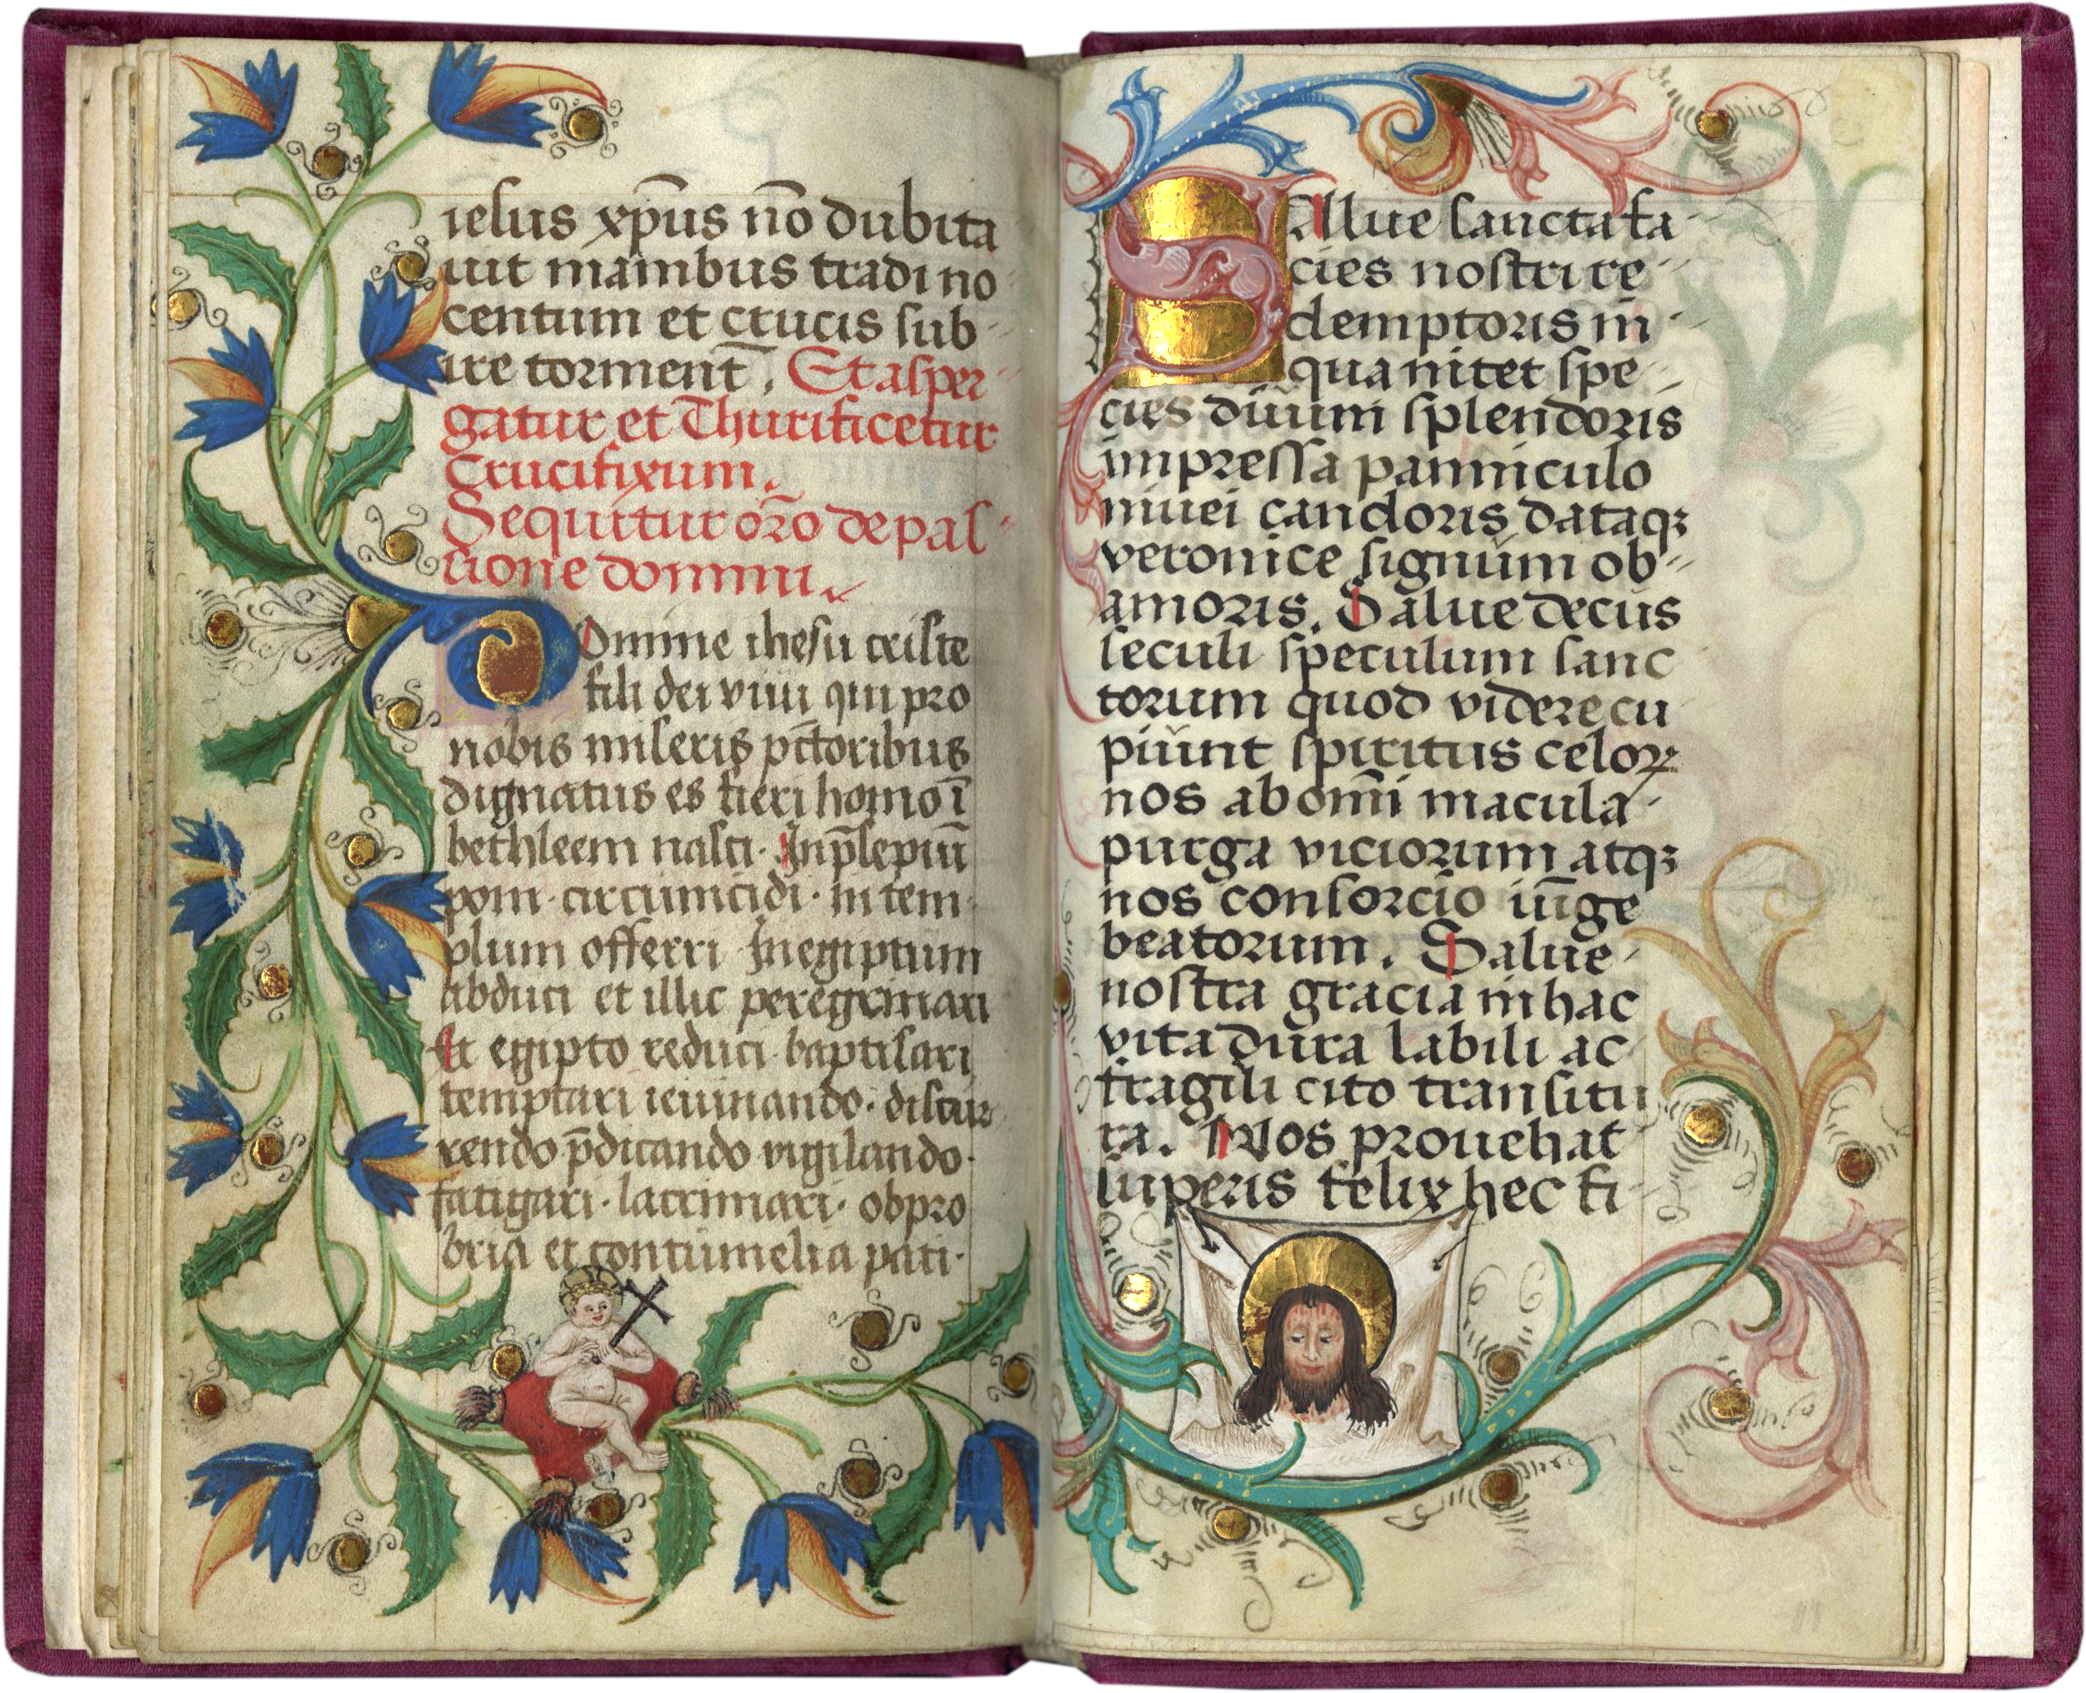 iesus xp̄us nō dubita
uit manibus tradi no
centum et crucis sub-
ire torment̄. Et asper-
gatur et Thurificetur
Crucifixum.
Sequitur or̄o de pas-
sione domini.
Domine ihesu criste
fili dei viui qui pro
nobis miseris pc̄toribus
dignatus es fieri homo ī
bethleem nasci. In p̄sepiuū
poni. circumcidi. in tem-
plum offerri In egiptum
abduci et illic peregrinari
Et egipto reduci. baptisari
temptari ieiunando. discur
rendo p̄dicando vigilando.
fatigari. lacrimari. obpro
bria et contumelia pati.
SAllue sancta fa-
cies nostri re-
demptoris in-
qua nitet spe-
cies diuini splendoris
impressa panniculo
niuei candoris dataqꝫ
veronice signum ob-
amoris. Salue decus
seculi speculum sanc
torum quod videre cu
piunt spiritus celoꝝ
nos ab om̄i macula-
purga viciorum atqꝫ
nos consorcio iūge
beatorum. Salue-
nostra gracia in hac
vita dura labili ac-
fragili cito transitu
ra. Nos prouehat
superis felix hec fi-